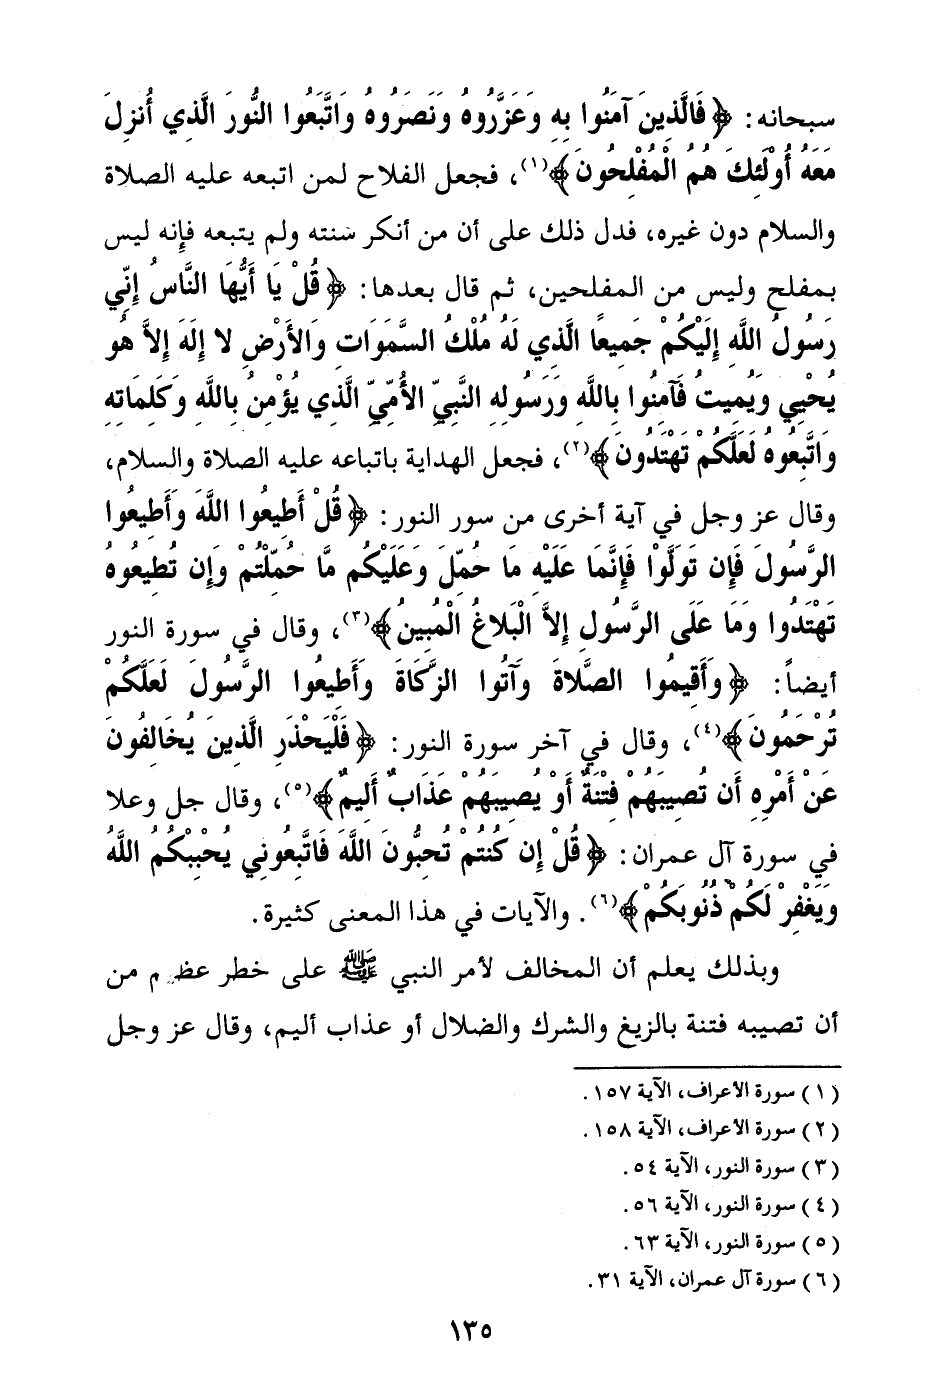 سبحانه: ﴿فَالَّذِينَ آمَنُوا بِهِ وَعَزَّرُوهُ وَنَصَرُوهُ وَاتَّبَعُوا النُّورَ الَّذِي أُنزِلَ
مَعَهُ أُوْلَئِكَ هُمُ الْمُفْلِحُونَ﴾(١)، فجعل الفلاح لمن اتبعه عليه الصلاة
والسلام دون غيره، فدل ذلك على أن من أنكر سنته ولم يتبعه فإنه ليس
بمفلح وليس من المفلحين، ثم قال بعدها: ﴿قُلْ يَا أَيُّهَا النَّاسُ إِنِّي
رَسُولُ اللَّهِ إِلَيْكُمْ جَمِيعًا الَّذِي لَهُ مُلْكُ السَّمَوَاتِ وَالأَرْضِ لا إِلَهَ إِلاَّ هُوَ
يُحْيِي وَيُمِيتُ فَآمِنُوا بِاللَّهِ وَرَسُولِهِ النَّبِيِّ الأُمِّيِّ الَّذِي يُؤْمِنُ بِاللَّهِ وَكَلِمَاتِهِ
وَاتَّبِعُوهُ لَعَلَّكُمْ تَهْتَدُونَ﴾(٢)، فجعل الهداية باتباعه عليه الصلاة والسلام،
وقال عز وجل في آية أخرى من سور النور: ﴿قُلْ أَطِيعُوا اللَّهَ وَأَطِيعُوا
الرَّسُولَ فَإِن تَوَلَّوْا فَإِنَّمَا عَلَيْهِ مَا حُمِّلَ وَعَلَيْكُم مَّا حُمِّلْتُمْ وَإِن تُطِيعُوهُ
تَهْتَدُوا وَمَا عَلَى الرَّسُولِ إِلاَّ الْبَلاغُ الْمُبِينُ﴾(٣)، وقال في سورة النور
أيضاً: ﴿وَأَقِيمُوا الصَّلاةَ وَآتُوا الزَّكَاةَ وَأَطِيعُوا الرَّسُولَ لَعَلَّكُمْ
تُرْحَمُونَ﴾(٤)، وقال في آخر سورة النور: ﴿فَلْيَحْذَرِ الَّذِينَ يُخَالِفُونَ
عَنْ أَمْرِهِ أَن تُصِيبَهُمْ فِتْنَةٌ أَوْ يُصِيبَهُمْ عَذَابٌ أَلِيمٌ﴾(٥)، وقال جل وعلا
في سورة آل عمران: ﴿قُلْ إِن كُنتُمْ تُحِبُّونَ اللَّهَ فَاتَّبِعُونِي يُحْبِبْكُمُ اللَّهُ
وَيَغْفِرْ لَكُمْ ذُنُوبَكُمْ﴾(٦). والآيات في هذا المعنى كثيرة.
وبذلك يعلم أن المخالف لأمر النبي ﷺ على خطر عظيم من
أن تصيبه فتنة بالزيغ والشرك والضلال أو عذاب أليم، وقال عز وجل
(١) سورة الأعراف، الآية ١٥٧.
(٢) سورة الأعراف، الآية ١٥٨.
(٣) سورة النور، الآية ٥٤.
(٤) سورة النور، الآية ٥٦.
(٥) سورة النور، الآية ٦٣.
(٦) سورة آل عمران، الآية ٣١.
١٣٥